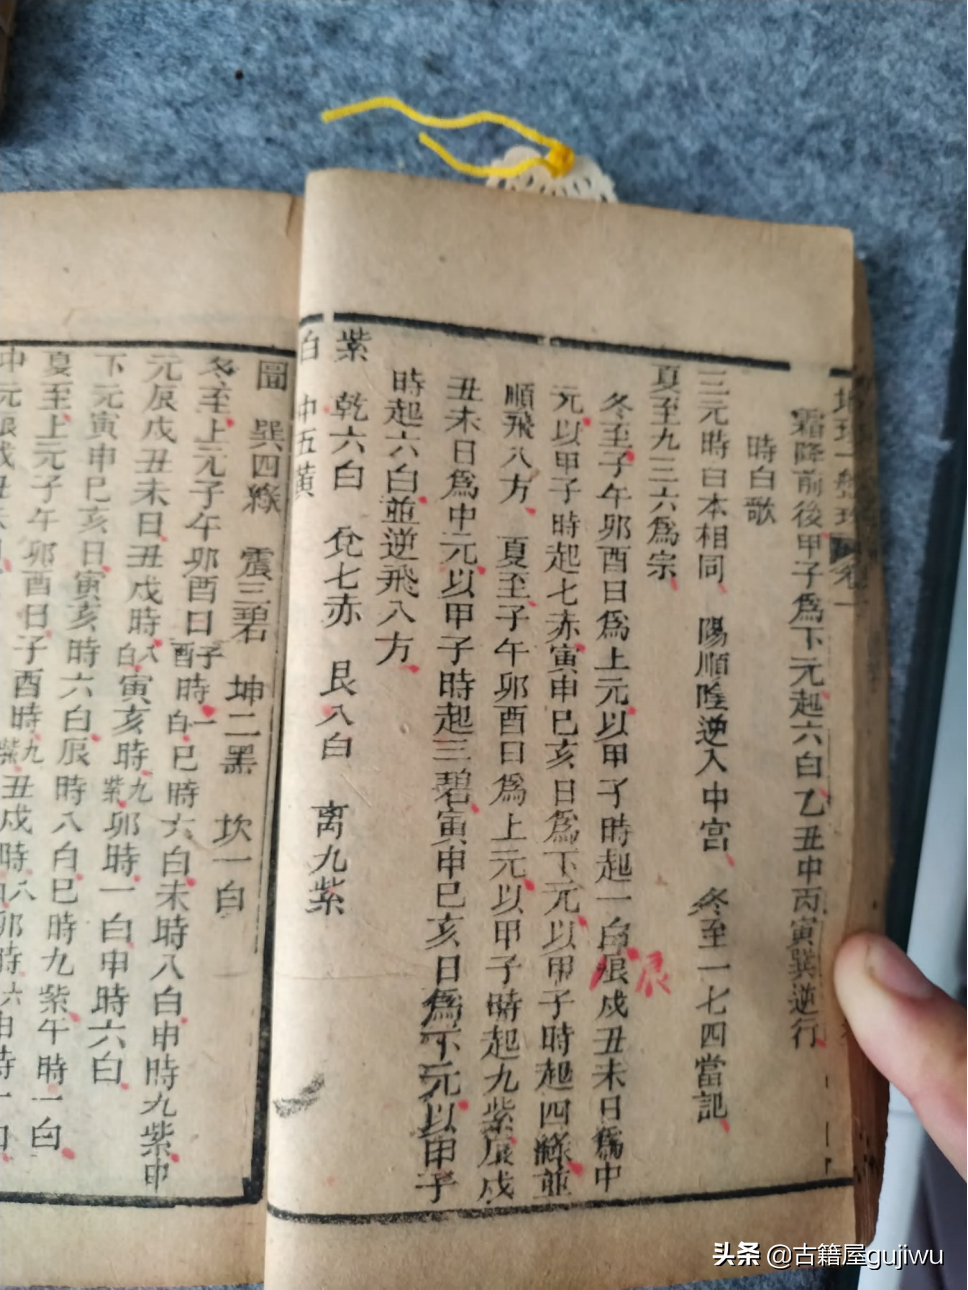 霜降前後甲子為下元起六白乙丑中丙寅巽逆行
時白歌
三元時白本相同 陽順陰逆入中宮 冬至一七四當記
夏至九三六為宗
冬至子午卯酉日為上元以甲子時起一白辰戍丑未日為中
元以甲子時起七赤寅申巳亥日為下元以甲子時起四綠並
順飛八方 夏至子午卯酉日為上元以甲子時起九紫辰戍
丑未日為中元以甲子時起三碧寅申巳亥日為下元以甲子
時起六白並逆飛八方
紫 乾六白 兌七赤 艮八白 离九紫
白 中五黃
圖 巽四綠 震三碧 坤二黑 坎一白
冬至上元子午卯酉日子酉時一白巳時六白未時八白申時九紫中
元辰戍丑未日丑戍時八白寅亥時九紫卯時一白申時六白
下元寅申巳亥日寅亥時六白辰時八白巳時九紫午時一白
夏至上元子午卯酉日子酉時九紫丑戍時八卯時六申時一白
辰
头条 @古籍屋gujiwu